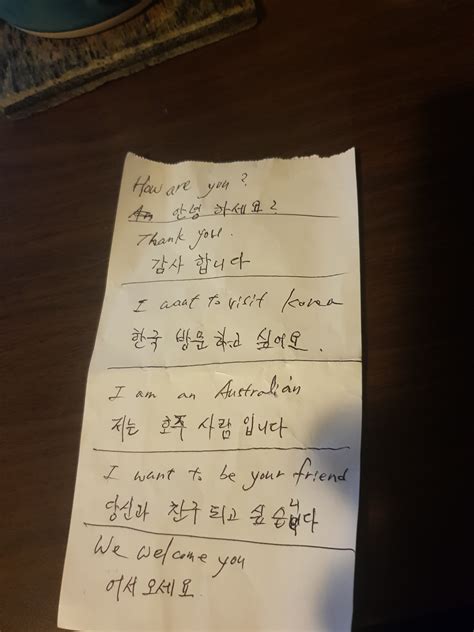 How are you?
안녕 하세요?
Thank you.
감사 합니다
I want to visit Korea
한국 방문하고 싶어요.
I am an Australian
저는 호주 사람 입니다
I want to be your friend
당신과 친구 되고 싶습니다
We welcome you
어서 오세요.